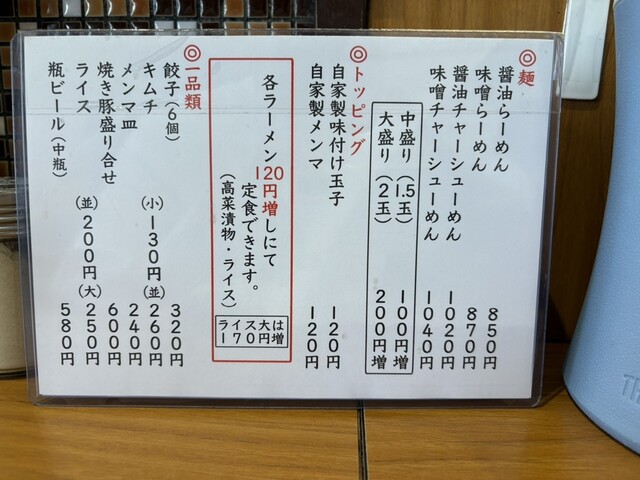 ◎麺
醤油らーめん 850円
味噌らーめん 870円
醤油チャーシューめん 1020円
味噌チャーシューめん 1040円
中盛り(1.5玉) 100円増
大盛り(2玉) 200円増
◎トッピング
自家製味付け玉子 120円
自家製メンマ 120円
各ラーメン120円増しにて
定食できます。
(高菜漬物・ライス)
ライス大は
170円増
◎一品類
餃子(6個) 320円
キムチ (小)130円 (並)260円
メンマ皿 240円
焼き豚盛り合せ 600円
ライス (並)200円 (大)250円
瓶ビール(中瓶) 580円
TH